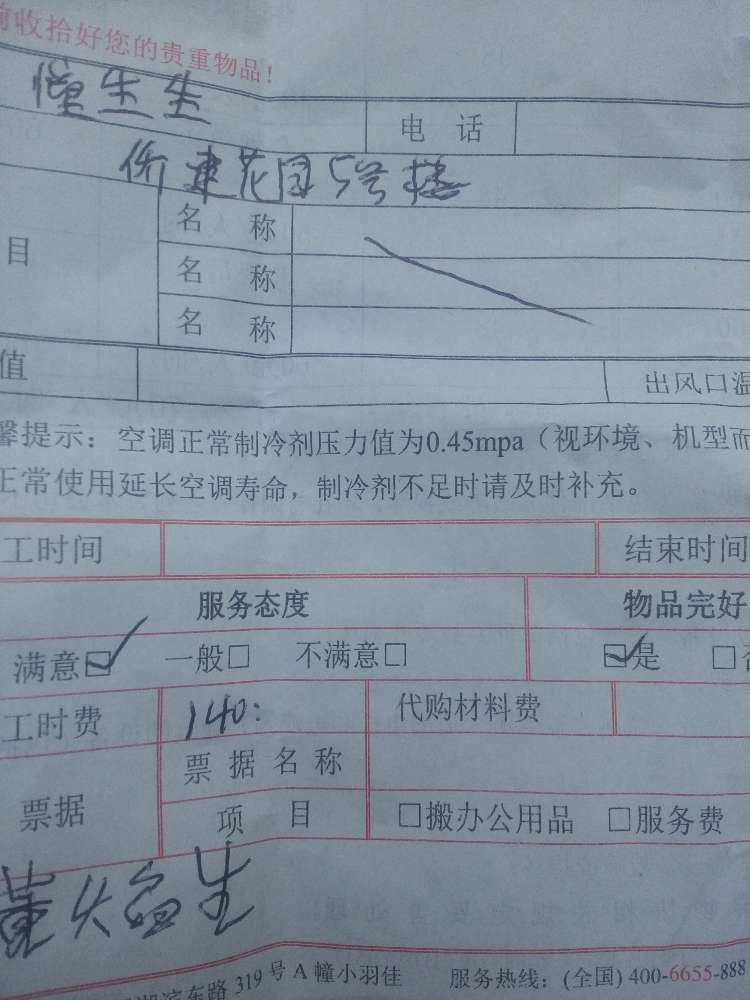 前收拾好您的贵重物品!
电 话
侨建花园5号楼
目 名 称
名 称
名 称
值 出风口温
馨提示：空调正常制冷剂压力值为0.45mpa（视环境、机型而
正常使用延长空调寿命，制冷剂不足时请及时补充。
工时间 结束时间
服务态度 物品完好
满意☑ 一般□ 不满意□ ☑是 □否
工时费 140: 代购材料费
票据 票据名称
项 目 □搬办公用品 □服务费
湖滨东路 319 号 A 幢小羽佳 服务热线：(全国) 400-6655-888